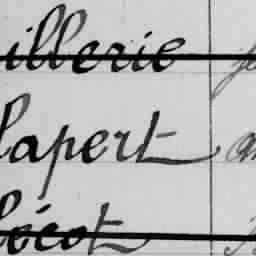 illerie
lapert
lécot